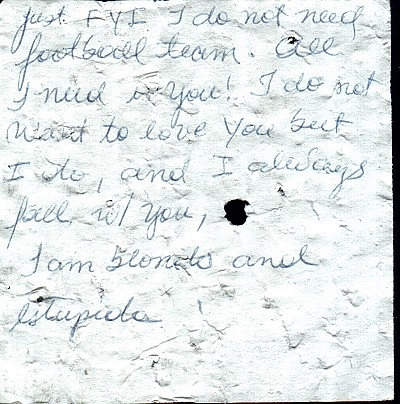 just FYI I do not need
football team. All
I need is you! I do not
want to love you but
I do, and I always
fall w/ you,
I am blonde and
estupida!